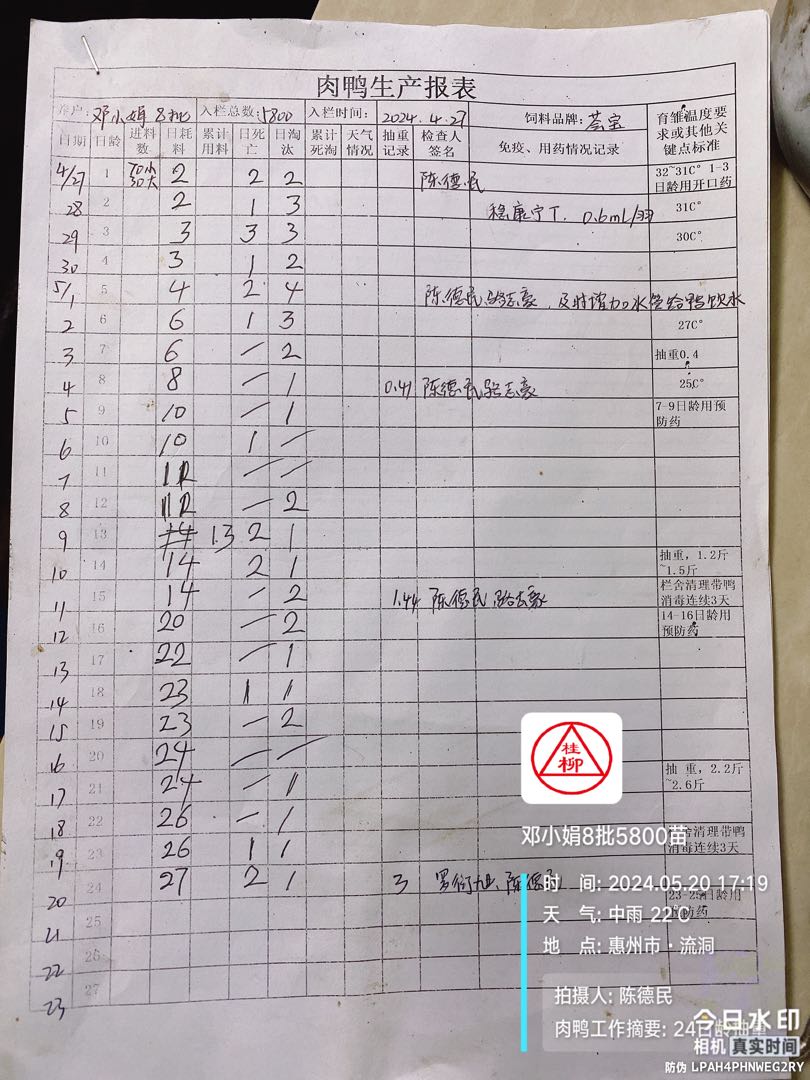 肉鸭生产报表
养户: 邓小娟 8批 入栏总数: 5800 入栏时间: 2024.4.27 饲料品牌: 荟宝 育雏温度要求或其他关键点标准
日期 日龄 进料数 日耗料 累计用料 日死亡 日淘汰 累计死淘 天气情况 抽重记录 检查人签名 免疫、用药情况记录
4/27 1 70小 30大 2 2 2 陈德民 32~31C° 1-3日龄用开口药
28 2 2 1 3 稳康宁T. 0.6mL/羽 31C°
29 3 3 3 3 30C°
30 4 3 1 2
5/1 5 4 2 4 陈德民 骆志豪, 及时增加水管给鸭饮水
2 6 6 1 3 27C°
3 7 6 — 2 抽重0.4
4 8 8 — 1 0.41 陈德民 骆志豪 25C°
5 9 10 — 1 7-9日龄用预防药
6 10 10 1 —
7 11 12 — —
8 12 12 — 2
9 13 13 2 1
10 14 14 2 1 抽重, 1.2斤~1.5斤
11 15 14 — 2 1.44 陈德民 骆志豪 栏舍清理带鸭消毒连续3天
12 16 20 — 2 14-16日龄用预防药
13 17 22 — 1
14 18 23 1 1
15 19 23 — 2
16 20 24 — —
17 21 24 — 1 抽 重, 2.2斤~2.6斤
18 22 26 — 1
19 23 26 1 1 栏舍清理带鸭消毒连续3天
20 24 27 2 1 3 陈德民 23-25日龄用预防药
21 25
22 26
23 27
桂柳
邓小娟8批5800苗
时 间: 2024.05.20 17:19
天 气: 中雨 22℃
地 点: 惠州市·流洞
拍摄人: 陈德民
肉鸭工作摘要: 24日龄抽重
今日水印
相机 真实时间
防伪 LPAH4PHNWEG2RY